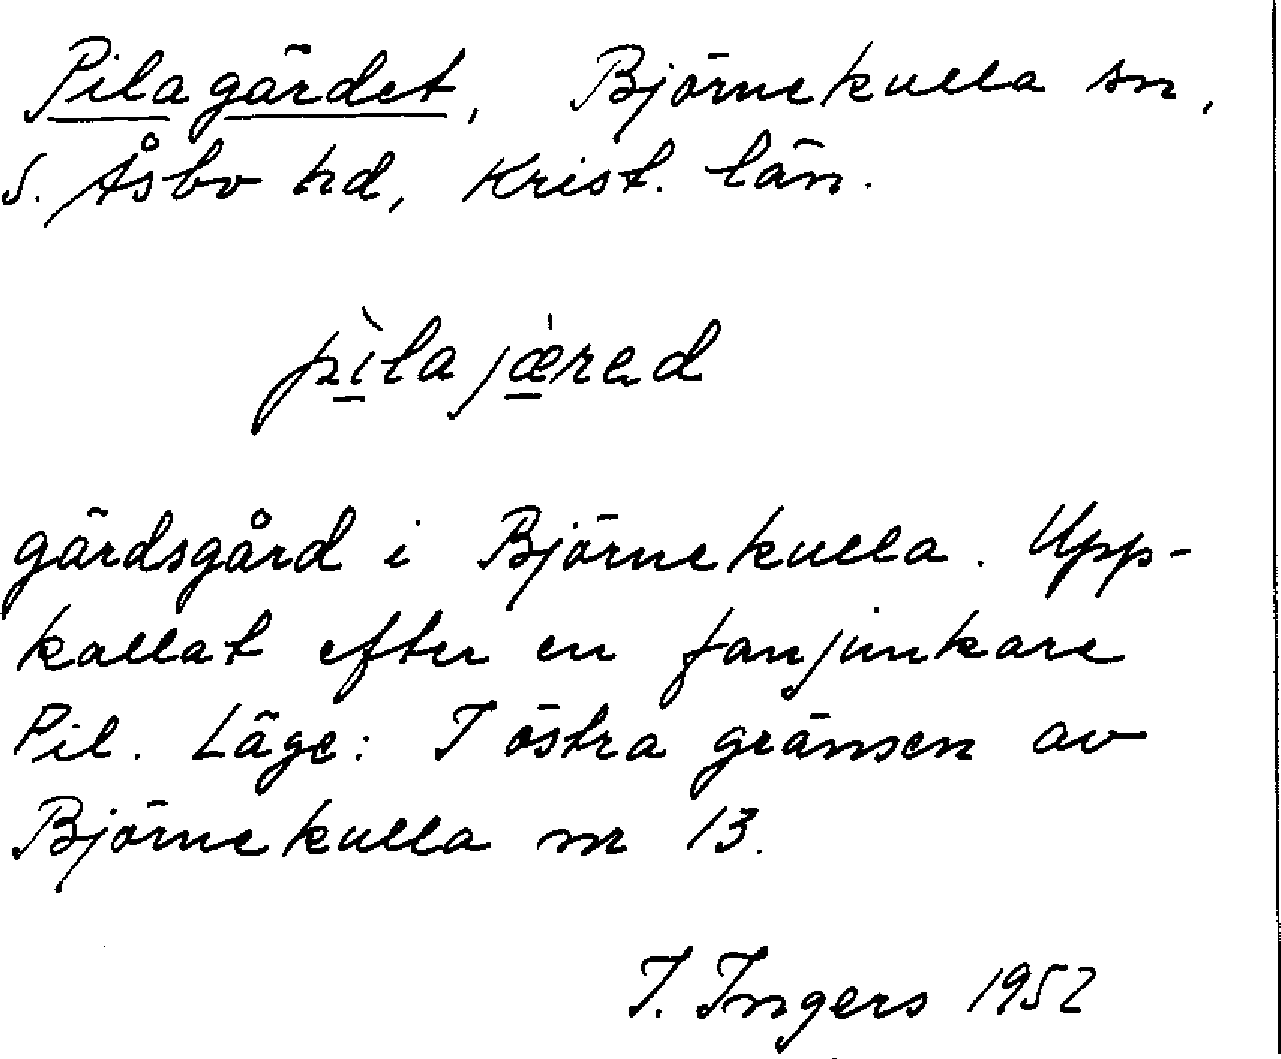 Pilagärdet, Björnekulla sn,
S. Åsbo hd, Krist. län.
pìlajæ̀rad
gärdsgård i Björnekulla. Upp-
kallat efter en fanjunkare
Pil. Läge: I östra gränsen av
Björnekulla nr 13.
I. Ingers 1952